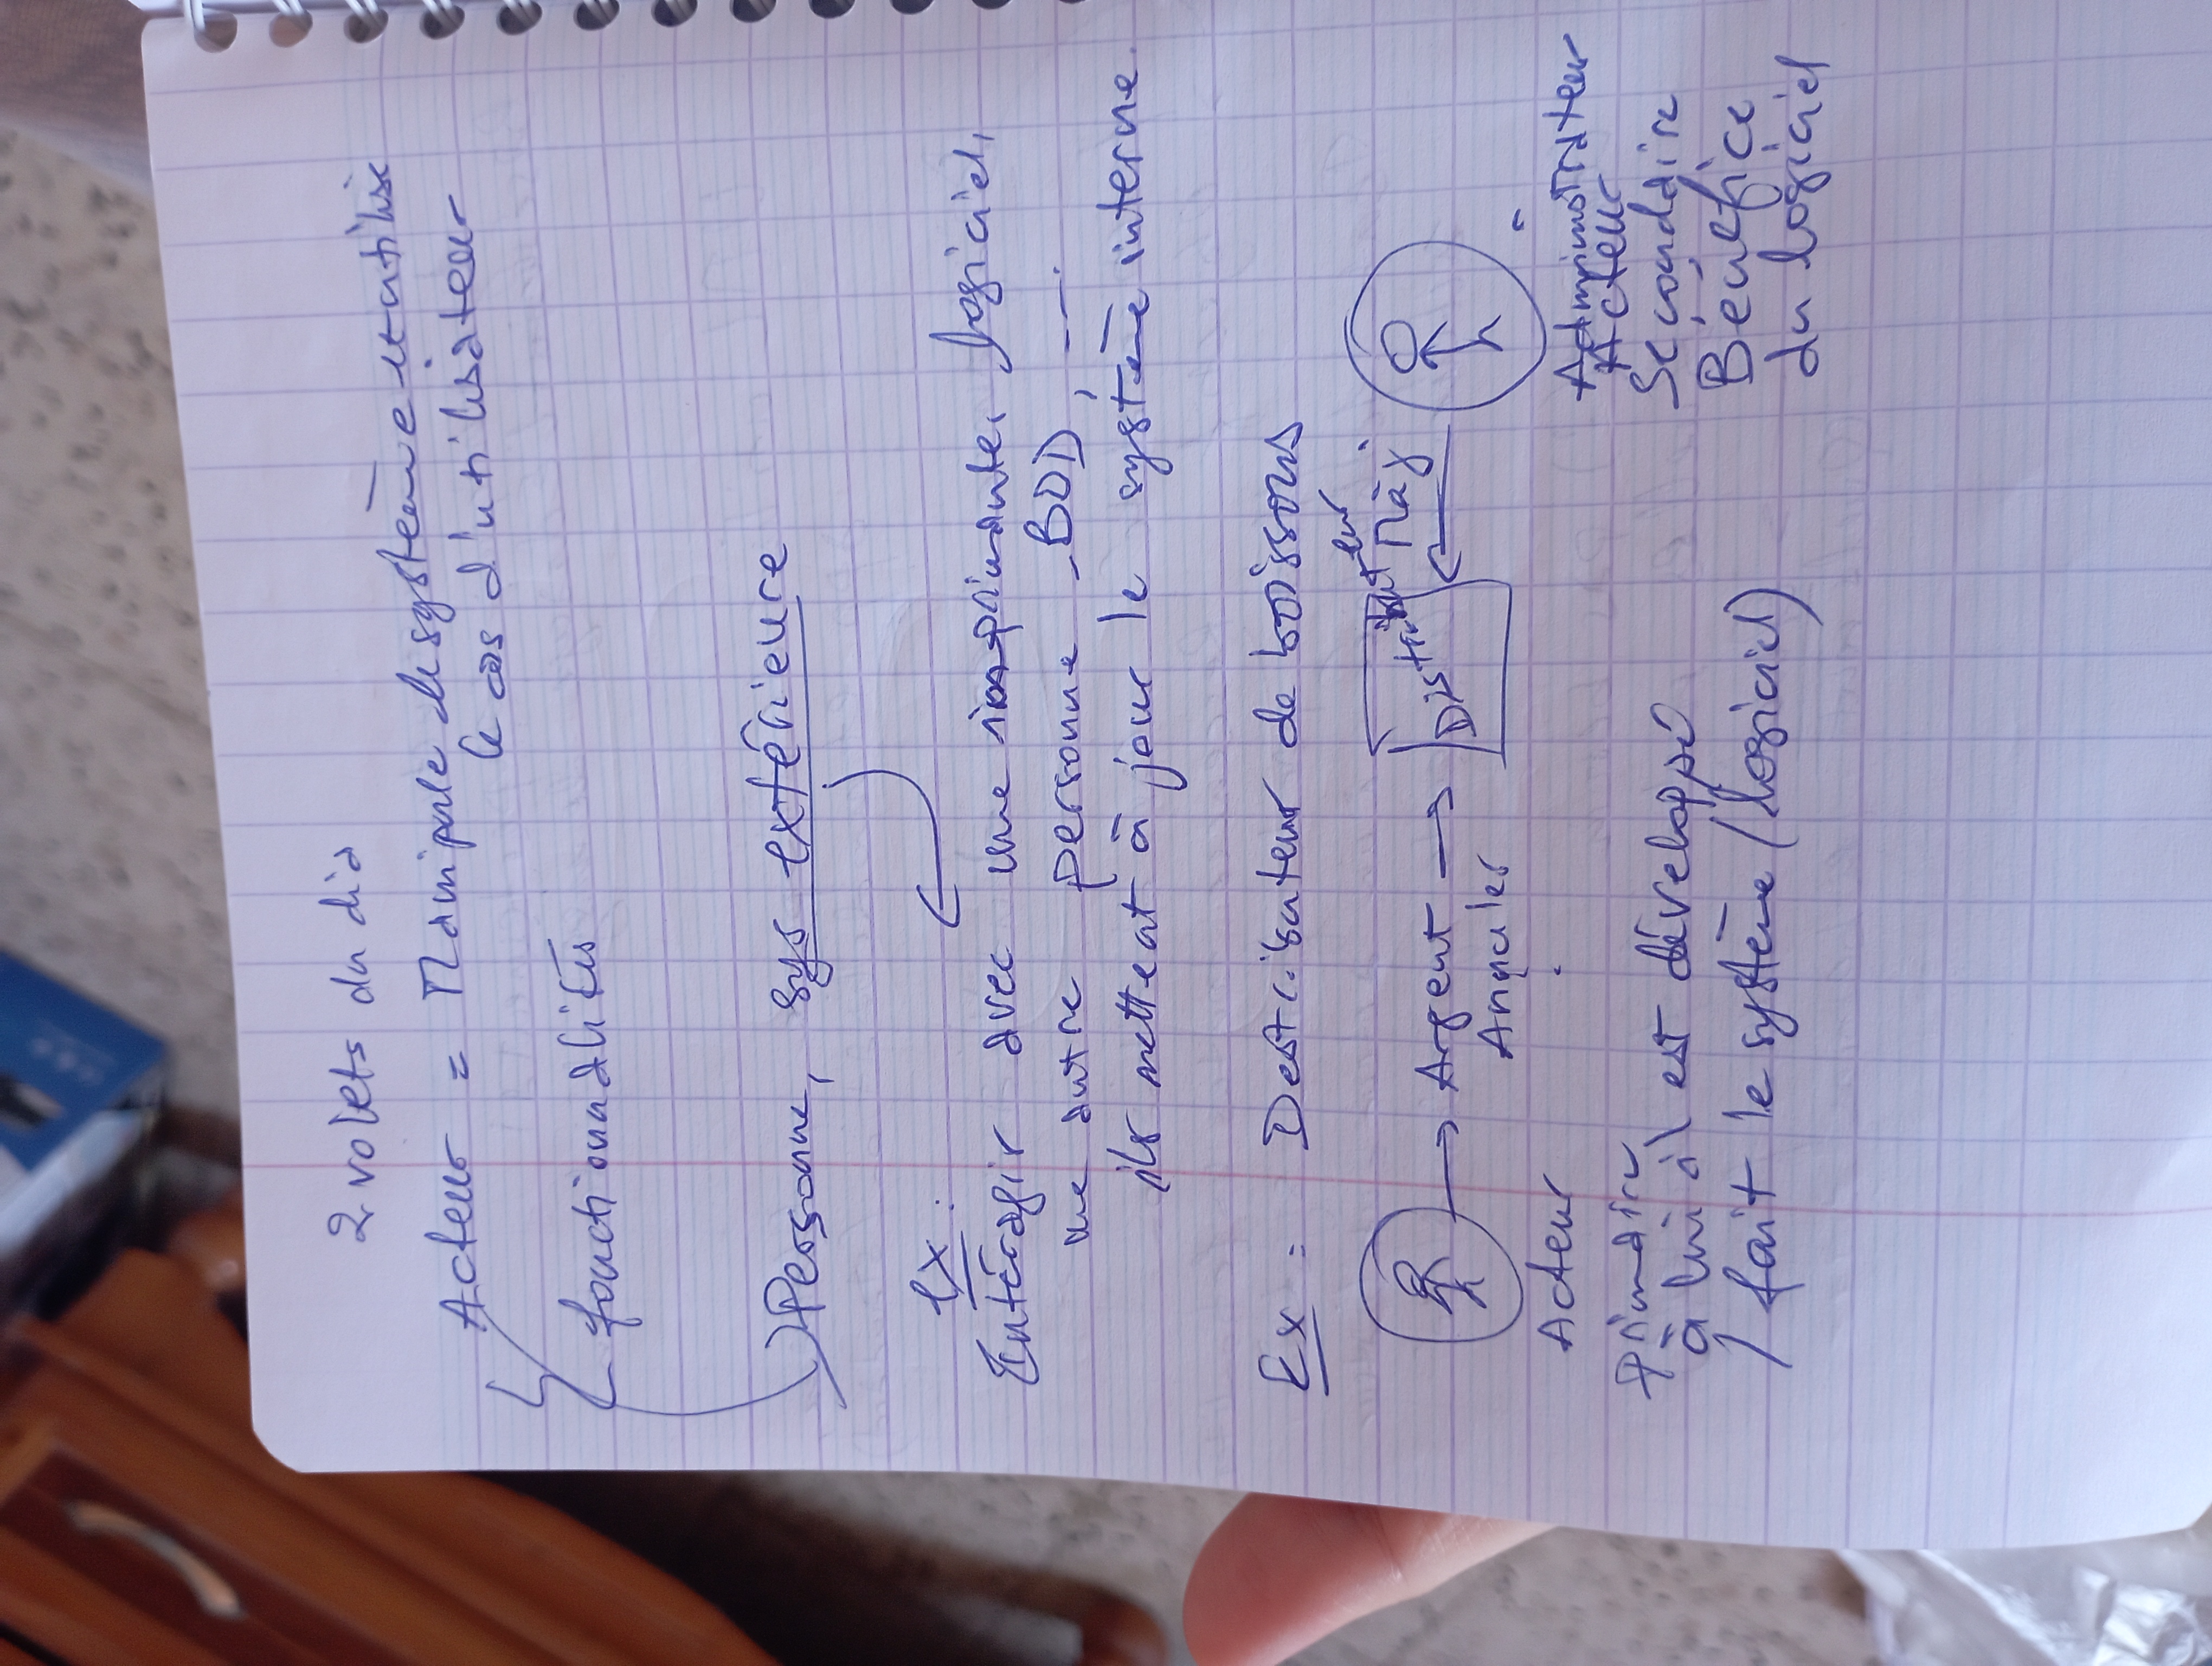 2 volets du dia
Acteur = Manipule le système et utilise
le cas d'utilisateur
fonctionnalités
Personne, sys extérieure
ex :
Intéragir avec une imprimante, logiciel,
une autre personne - BDD, ---
ils mettent à jour le système interne
Ex : Destributeur de boissons
Argent
Annuler
Distributeur
Màj
Acteur
primaire
à lui il est développé
/ fait le système (logiciel)
Administrateur
Acteur
Secondaire
Bénéfice
du logiciel